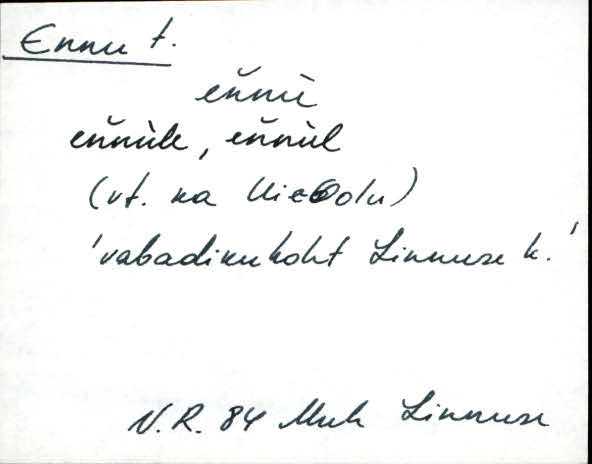 Ennu t.
eňnù
eňnùle, eňnùl
(vt. ka Uietolu)
'vabadikukoht Linnuse k.'
N.R. 84 Muh Linnuse